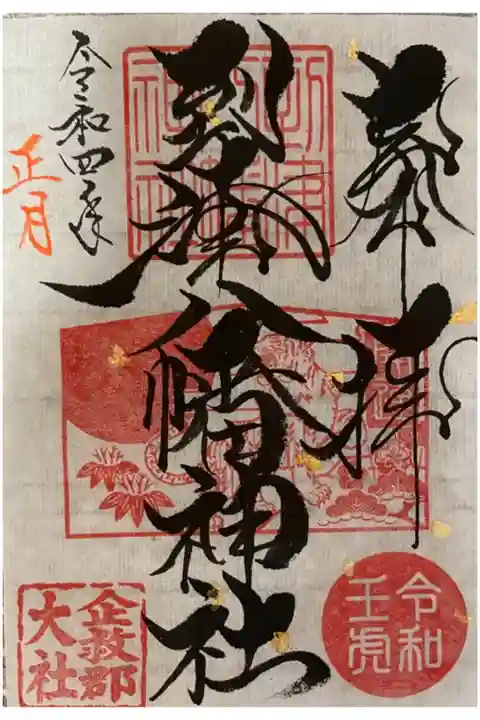 奉拝
到津八幡神社
令和四年
正月
令和
壬虎
企救郡
大社